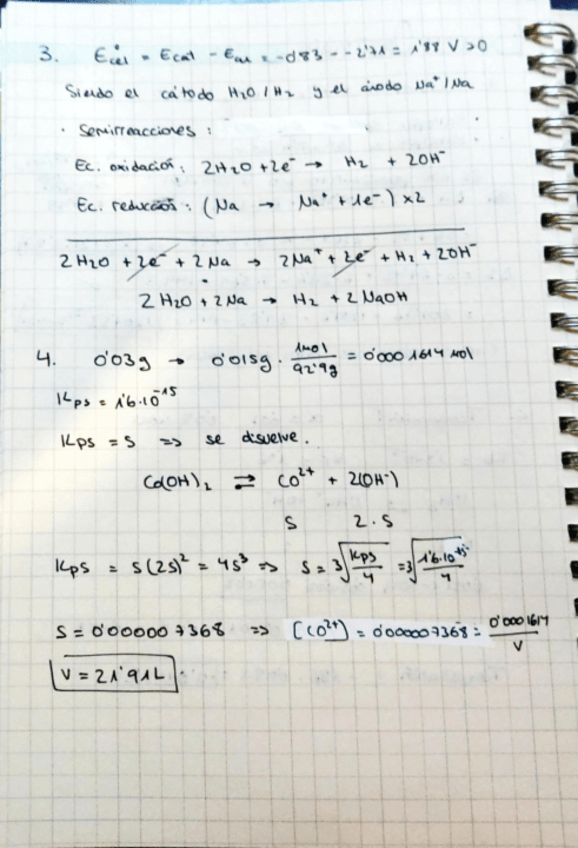 3. E°cel = Ecat - Ean = -0'83 - -2'71 = 1'88 V > 0
Siendo el cátodo H2O / H2 y el ánodo Na⁺ / Na
· Semirreacciones :
Ec. oxidación : 2H2O + 2e⁻ → H2 + 2OH⁻
Ec. reducción : (Na → Na⁺ + 1e⁻) x2
2 H2O + 2e⁻ + 2 Na → 2Na⁺ + 2e⁻ + H2 + 2OH⁻
2 H2O + 2Na → H2 + 2 NaOH
4. 0'03g → 0'015g · 1mol / 92'9g = 0'000 1614 mol
Kps = 1'6·10⁻¹⁵
Kps = S => se disuelve.
Co(OH)2 ⇄ Co²⁺ + 2(OH⁻)
S 2·S
Kps = S(2S)² = 4S³ => S = ³√(Kps / 4) = ³√(1'6·10⁻¹⁵ / 4)
S = 0'00000 7368 => [Co²⁺] = 0'00000 7368 = 0'000 1614 / V
V = 21'91L